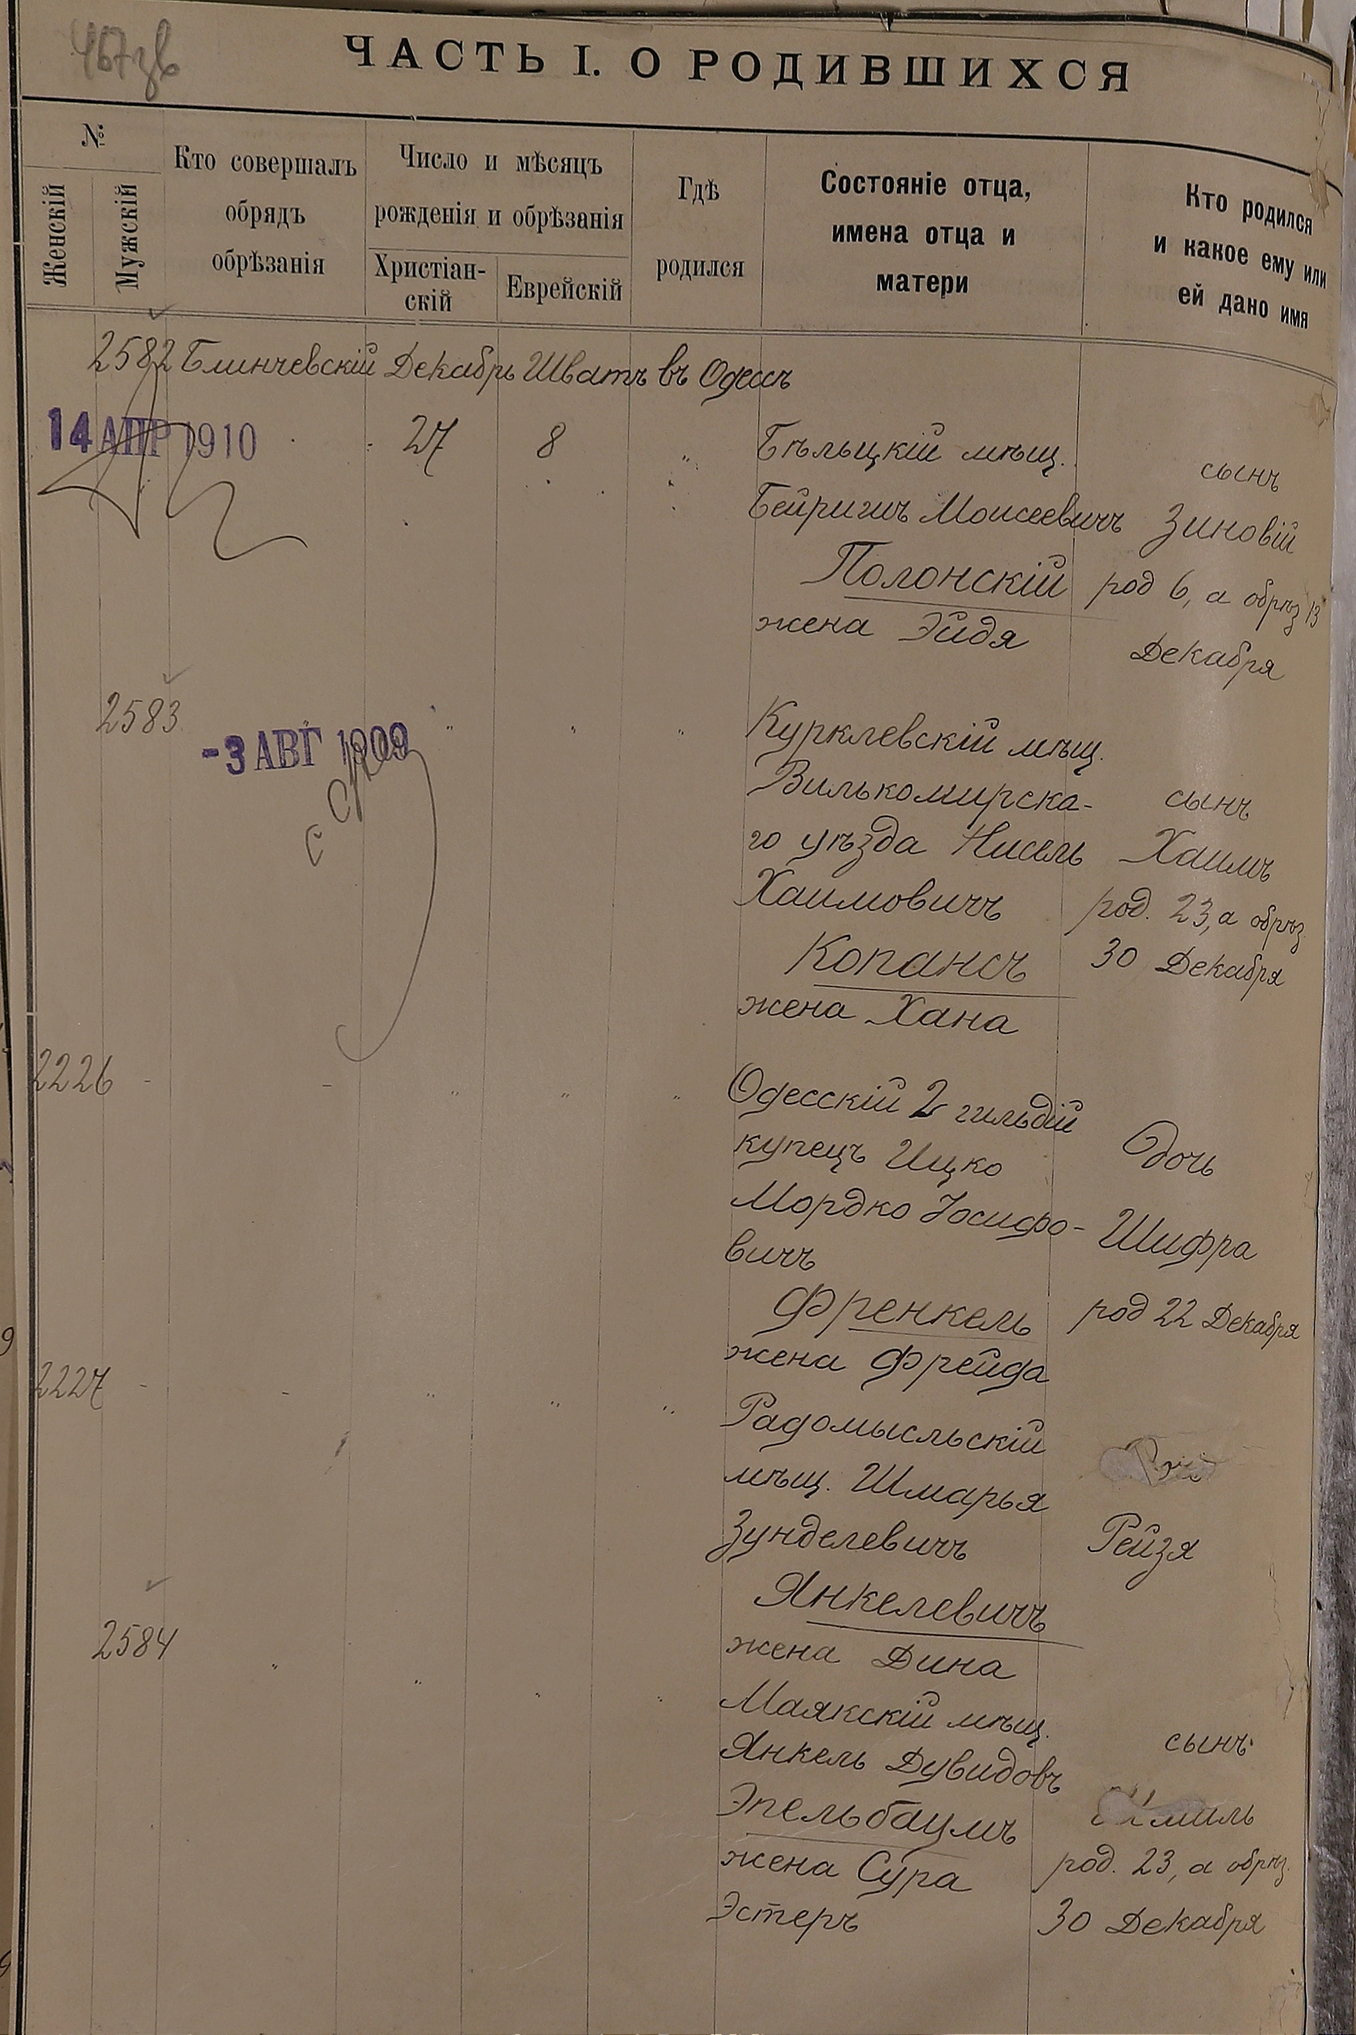 467 зв
ЧАСТЬ I. О РОДИВШИХСЯ
№
Женскій
Мужскій
Кто совершалъ
обрядъ
обрѣзанія
Число и мѣсяцъ
рожденія и обрѣзанія
Христіан-
скій
Еврейскій
Гдѣ
родился
Состояніе отца,
имена отца и
матери
Кто родился
и какое ему или
ей дано имя
2582 Блинчевскій Декабрь Шватъ въ Одессѣ
14 АПР 1910
27
8
"
Бѣльцкій мѣщ.
Бейришъ Моисеевичъ
Полонскій
жена Эйдя
сынъ
Зиновій
род 6, а обрѣз 13
Декабря
2583
-3 АВГ 1909
"
"
"
Курклевскій мѣщ.
Вилькомирска-
го уѣзда Нисель
Хаимовичъ
Копансъ
жена Хана
сынъ
Хаимъ
род. 23, а обрѣз
30 Декабря
2226 - - " " "
Одесскій 2 гильдій
купецъ Ицко
Мордко Іосифо-
вичъ
Френкель
жена Фрейда
дочь
Шифра
род 22 Декабря
2227 - - " " "
Радомысльскій
мѣщ. Шмарья
Зунделевичъ
Янкелевичъ
жена Дина
Рейзя
2584 " " " "
Маякскій мѣщ.
Янкель Дувидовъ
Эпельбаумъ
жена Сура
Эстеръ
сынъ
род. 23, а обрѣз.
30 Декабря